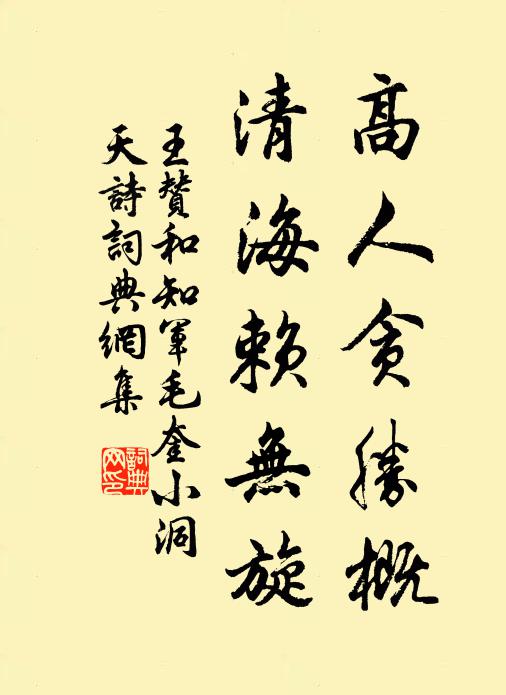 高人貪勝概
清海賴無旋
王贊和知軍毛奎小洞
天詩詞典網集
詞典
網印